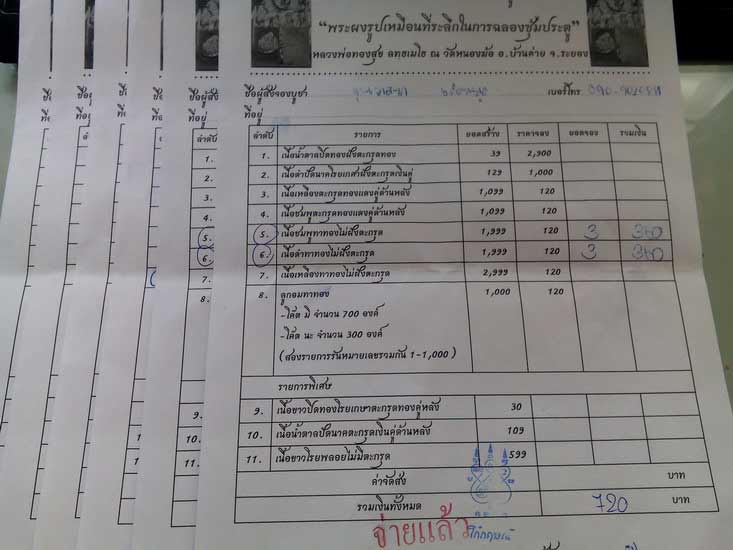 "พระผงรูปเหมือนที่ระลึกในการฉลองซุ้มประตู"
หลวงพ่อทองสุข ณ วัดหนองม้อ อ.บ้านค่าย จ.ระยอง
ชื่อผู้สั่งจองบูชา เบอร์โทร
ที่อยู่
ลำดับ รายการ ยอดสร้าง ราคาจอง ยอดจอง รวมเงิน
1. เนื้อน้ำตาลปิดทองฝังตะกรุดทอง 39 2,900
2. เนื้อดำปัดนาคโรยเกศาฝังตะกรุดเงินคู่ 129 1,000
3. เนื้อเหลืองตะกรุดทองแดงคู่ด้านหลัง 1,099 120
4. เนื้อชมพูตะกรุดทองแดงคู่ด้านหลัง 1,099 120
5. เนื้อชมพูทาทองไม่ฝังตะกรุด 1,999 120 3 360
6. เนื้อดำทาทองไม่ฝังตะกรุด 1,999 120 3 360
7. เนื้อเหลืองทาทองไม่ฝังตะกรุด 2,999 120
8. ลูกอมทาทอง 1,000 120
-โค๊ต มิ จำนวน 700 องค์
-โค๊ต นะ จำนวน 300 องค์
(สองรายการรันหมายเลขรวมกัน 1-1,000 )
รายการพิเศษ
9. เนื้อขาวปิดทองโรยเกษาตะกรุดทองคู่หลัง 30
10. เนื้อน้ำตาลปัดนาคตะกรุดเงินคู่ด้านหลัง 109
11. เนื้อขาวโรยพลอยไม่มีตะกรุด 599
ค่าจัดส่ง บาท
รวมเงินทั้งหมด 720 บาท
จ่ายแล้ว